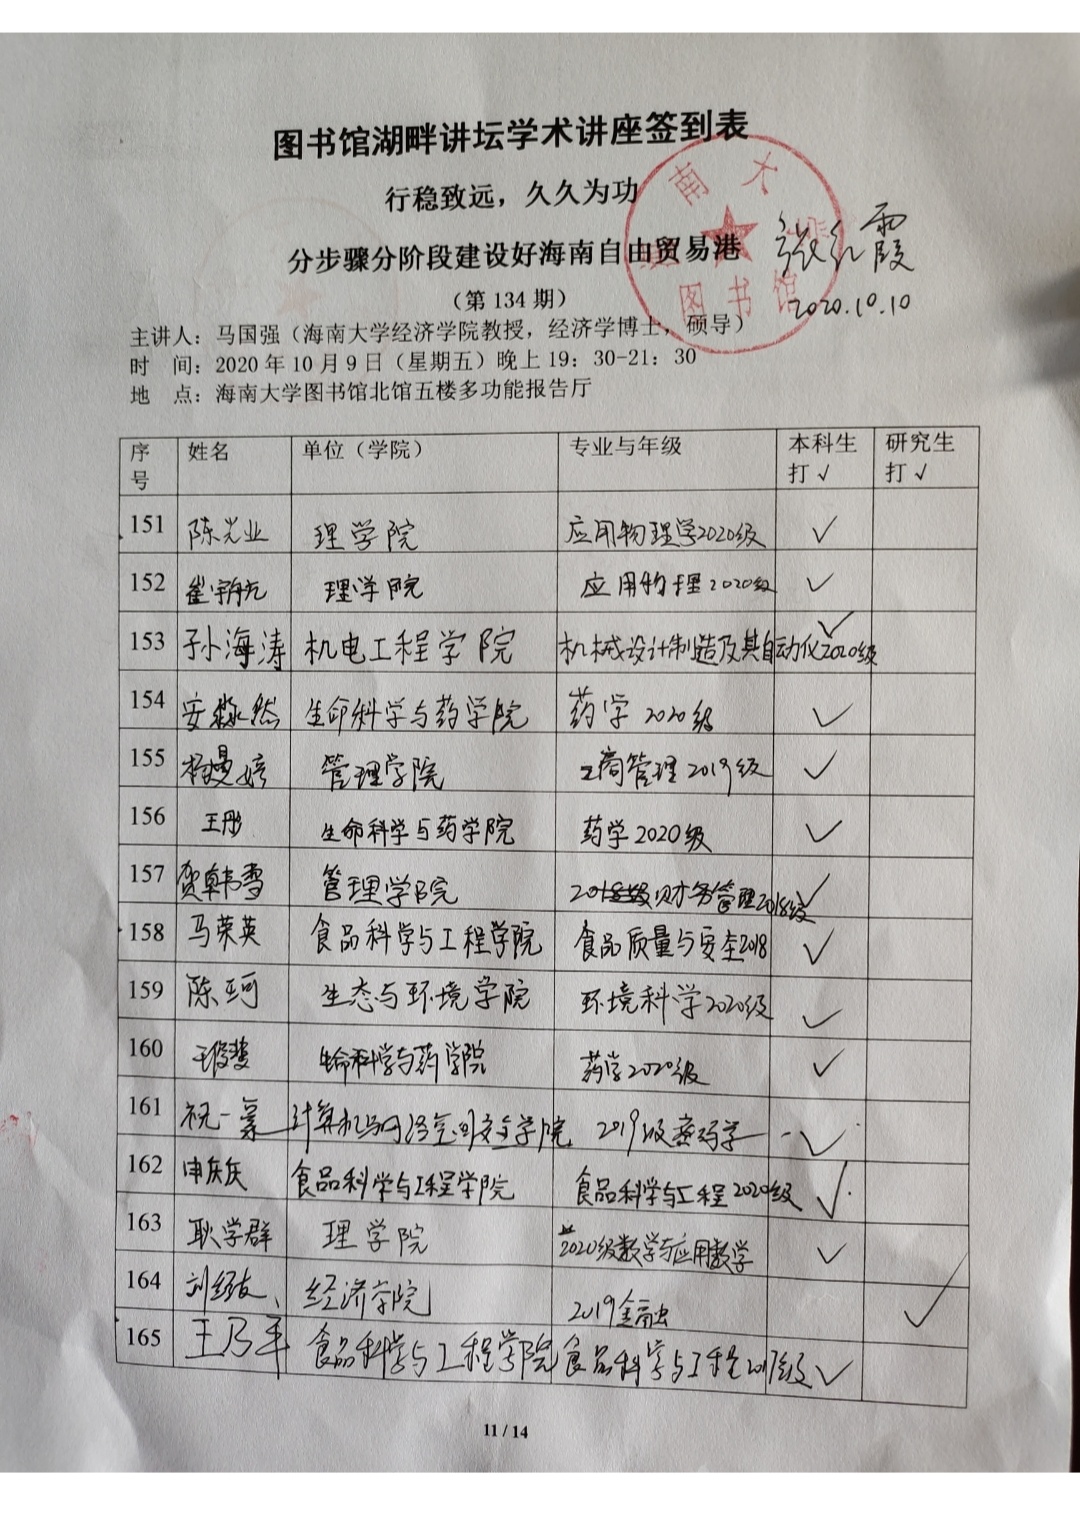 图书馆湖畔讲坛学术讲座签到表
行稳致远，久久为功
分步骤分阶段建设好海南自由贸易港
（第 134 期）
南大
图书馆
张红霞
2020.10.10
主讲人：马国强（海南大学经济学院教授，经济学博士，硕导）
时 间：2020 年 10 月 9 日（星期五）晚上 19：30-21：30
地 点：海南大学图书馆北馆五楼多功能报告厅
序号 姓名 单位（学院） 专业与年级 本科生打√ 研究生打√
151 陈光业 理学院 应用物理学2020级 √
152 理学院 应用物理2020级 √
153 孙海涛 机电工程学院 机械设计制造及其自动化2020级 √
154 安淼然 生命科学与药学院 药学 2020级 √
155 杨曼婷 管理学院 工商管理2019级 √
156 王彤 生命科学与药学院 药学2020级 √
157 贺韩雪 管理学院 财务管理2018级 √
158 马荣英 食品科学与工程学院 食品质量与安全2018 √
159 陈珂 生态与环境学院 环境科学2020级 √
160 生命科学与药学院 药学2020级 √
161 祝一 计算机与网络空间安全学院 2019级密码学 √
162 申庆庆 食品科学与工程学院 食品科学与工程2020级 √
163 耿学群 理学院 2020级数学与应用数学 √
164 经济学院 2019金融 √
165 王乃平 食品科学与工程学院 食品科学与工程2017级 √
11 / 14